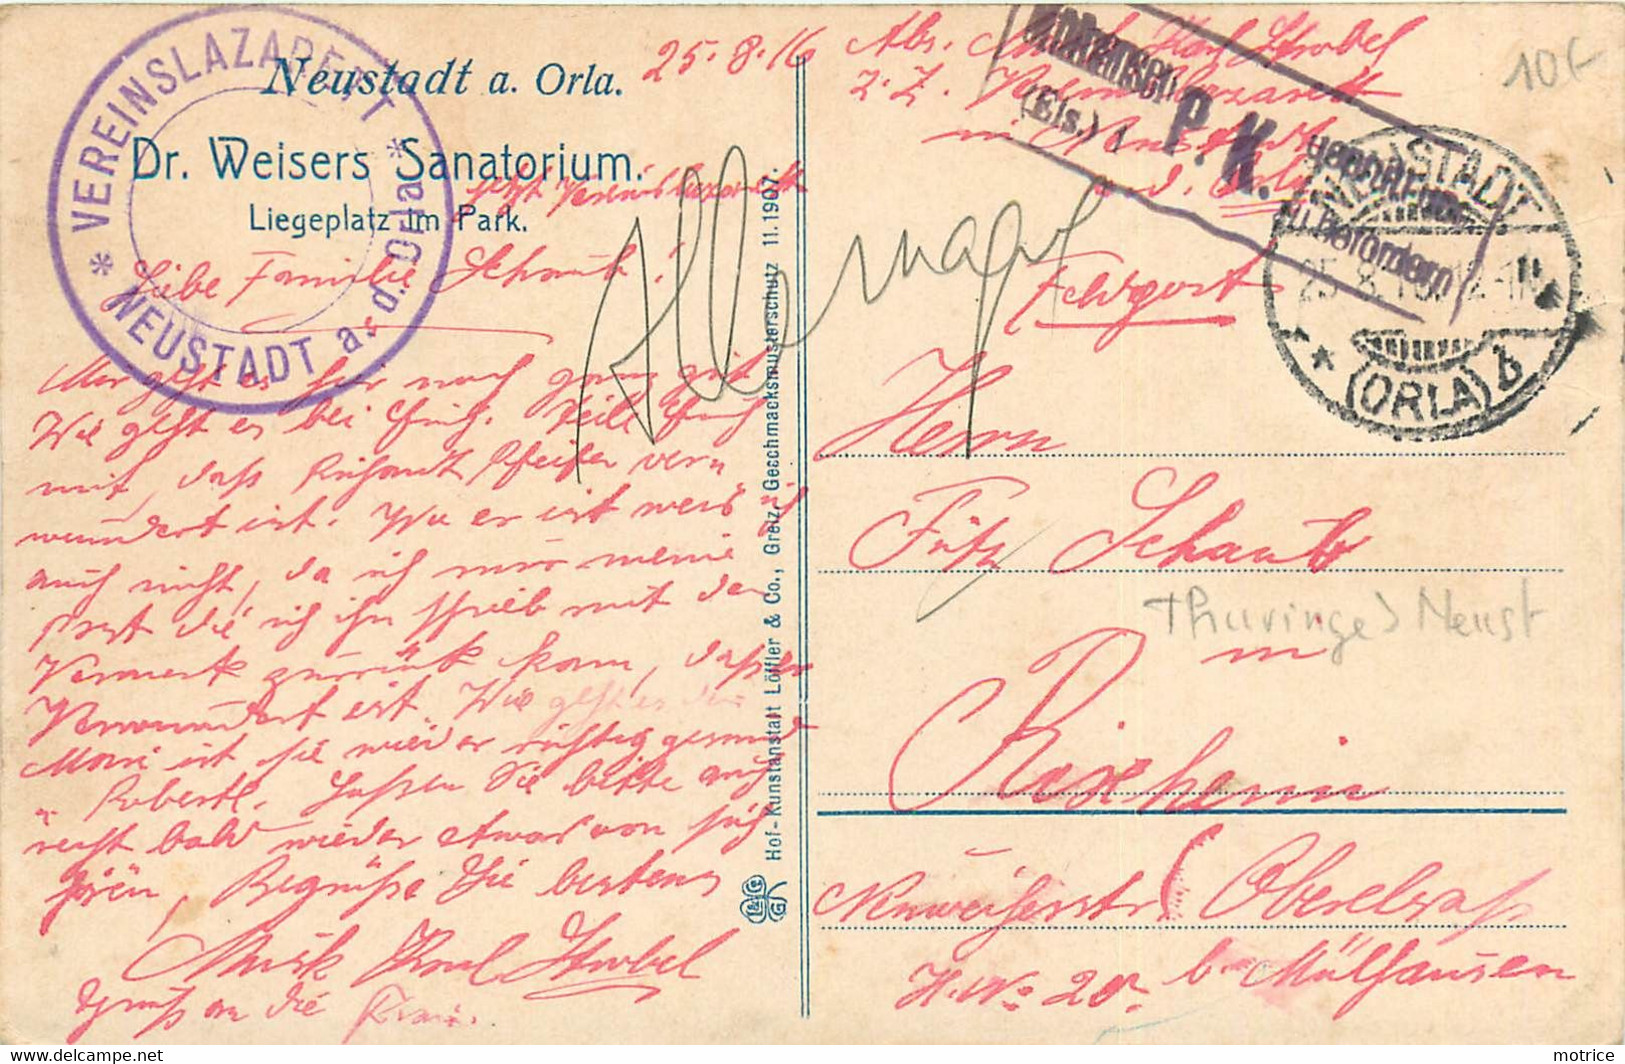 Neustadt a. Orla.
Dr. Weisers Sanatorium.
jetzt Vereinslazarett
Liegeplatz im Park.
VEREINSLAZARETT
* NEUSTADT a. d. Orla *
25.8.16
Liebe Familie Schaub!
Mir geht es hier noch ganz gut
Wie geht es bei Euch. Teile Euch
mit, daß Pfeifer ver
wundert ist. Wo er ist weis ich
auch nicht, da ich nur meine
Post die ich ihm schrieb mit den
Vermerk zurück kam, daß er
Verwundert ist. Wie geht es den
Marie ist sie wieder richtig gesund
u Robert. Laßen Sie bitte auch
recht bald wieder etwas von sich
hören, Begrüße Sie bestens
Musk Karl Strobel
Gruß an die Frau.
Hof-Kunstanstalt Löffler & Co., Greiz, Geschmacksmusterschutz 11. 1907.
L&C
G
Abs. Musk Karl Strobel
z. Z. Vereinslazarett
in Neustadt
a. d. Orla
10f
(Els.) 1
P. K.
u. befördern
NEUSTADT
25.8.16. 12-1N
* (ORLA) b *
Allemagne
Feldpost
Herrn
Fritz Schaub
Thuringe > Neust
in
Rixheim
Oberelsaß
H. No 20 b. Mülhausen
motrice